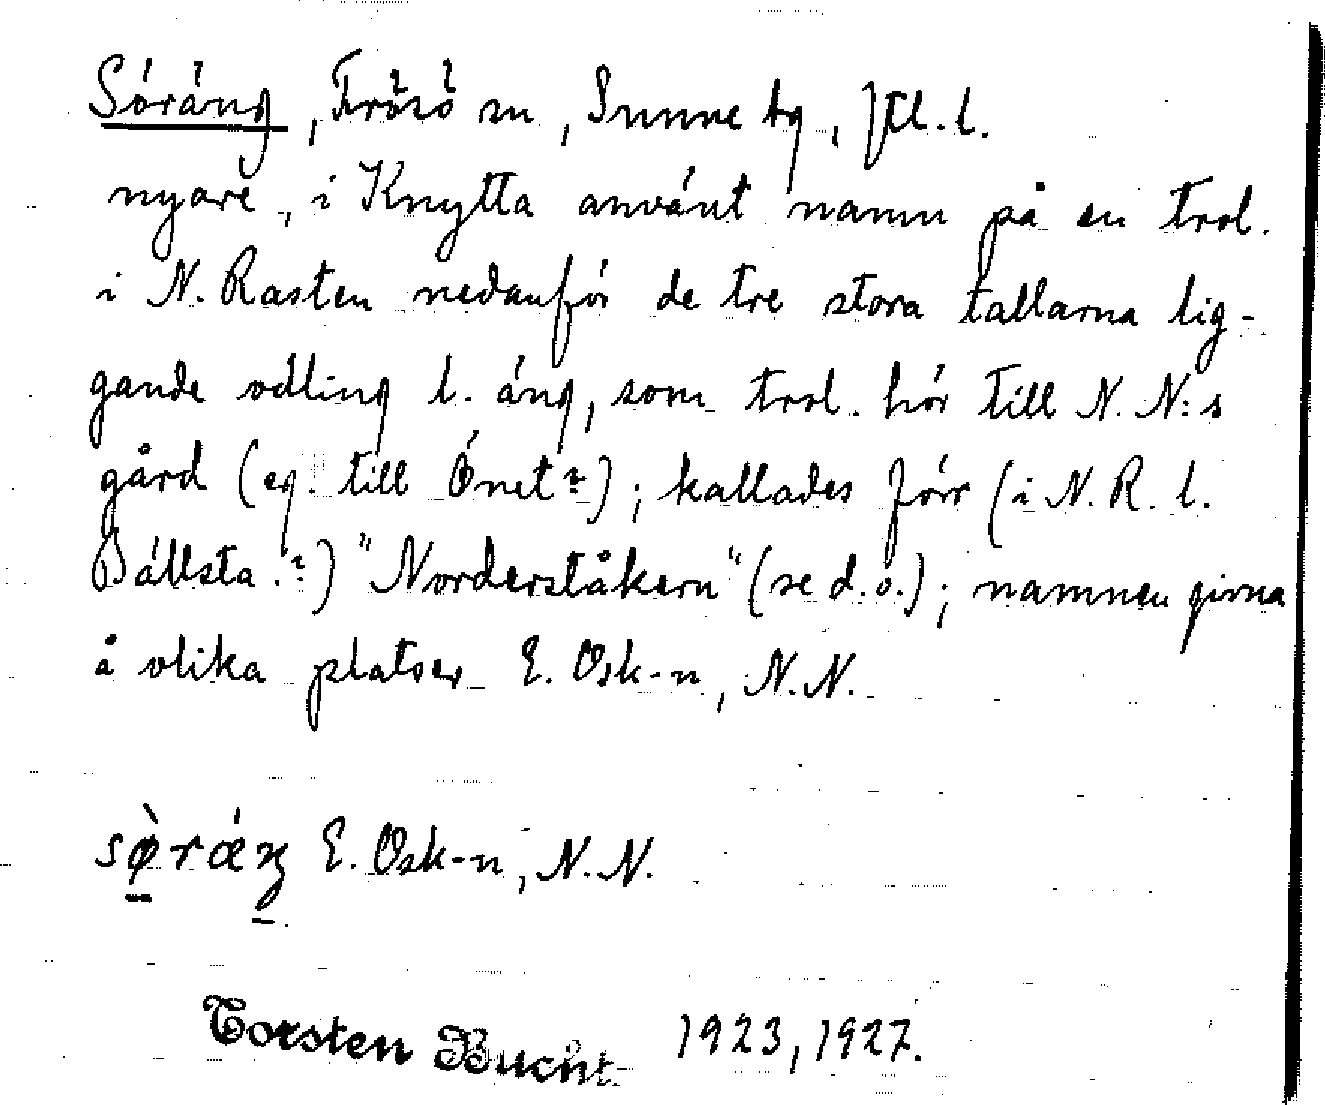 Söräng, Frösö sn, Sunne tg, Jtl. l.
nyare, i Knytta använt namn på en trol.
i N. Rasten nedanför de tre stora tallarna lig-
gande odling l. äng, som trol. hör till N. N:s
gård (eg. till Önet?); kallades förr (i N. R. l.
Bällsta?) "Norderståkern" (se d. o.); namnen givna
å olika platser E. Osk-n, N.N.
sø̀rǽŋ E. Osk-n, N.N.
Torsten Bucht 1923, 1927.